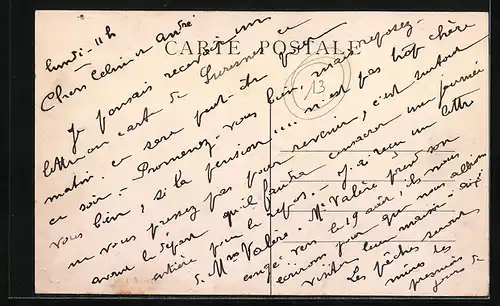 lundi - 11 h
CARTE POSTALE
13
Chers Céline et André
Je pensais recevoir un
lettre ou carte de Suresnes ce
matin. ce sera peut-être pour
ce soir. - Promenez-vous bien, mais reposez-
vous bien, si la pension.... n'est pas trop chère
ne vous pressez pas pour revenir, c'est surtout
avant le départ qu'il faudra consacrer une journée
entière pour le repos. - J'ai reçu une lettre
de Mme Valère. Mr Valère prend son
congé vers le 19 août, ils nous
écriront pour que nous allions
visiter leur maison
Les pêches seront
mûres les
premiers
jours de